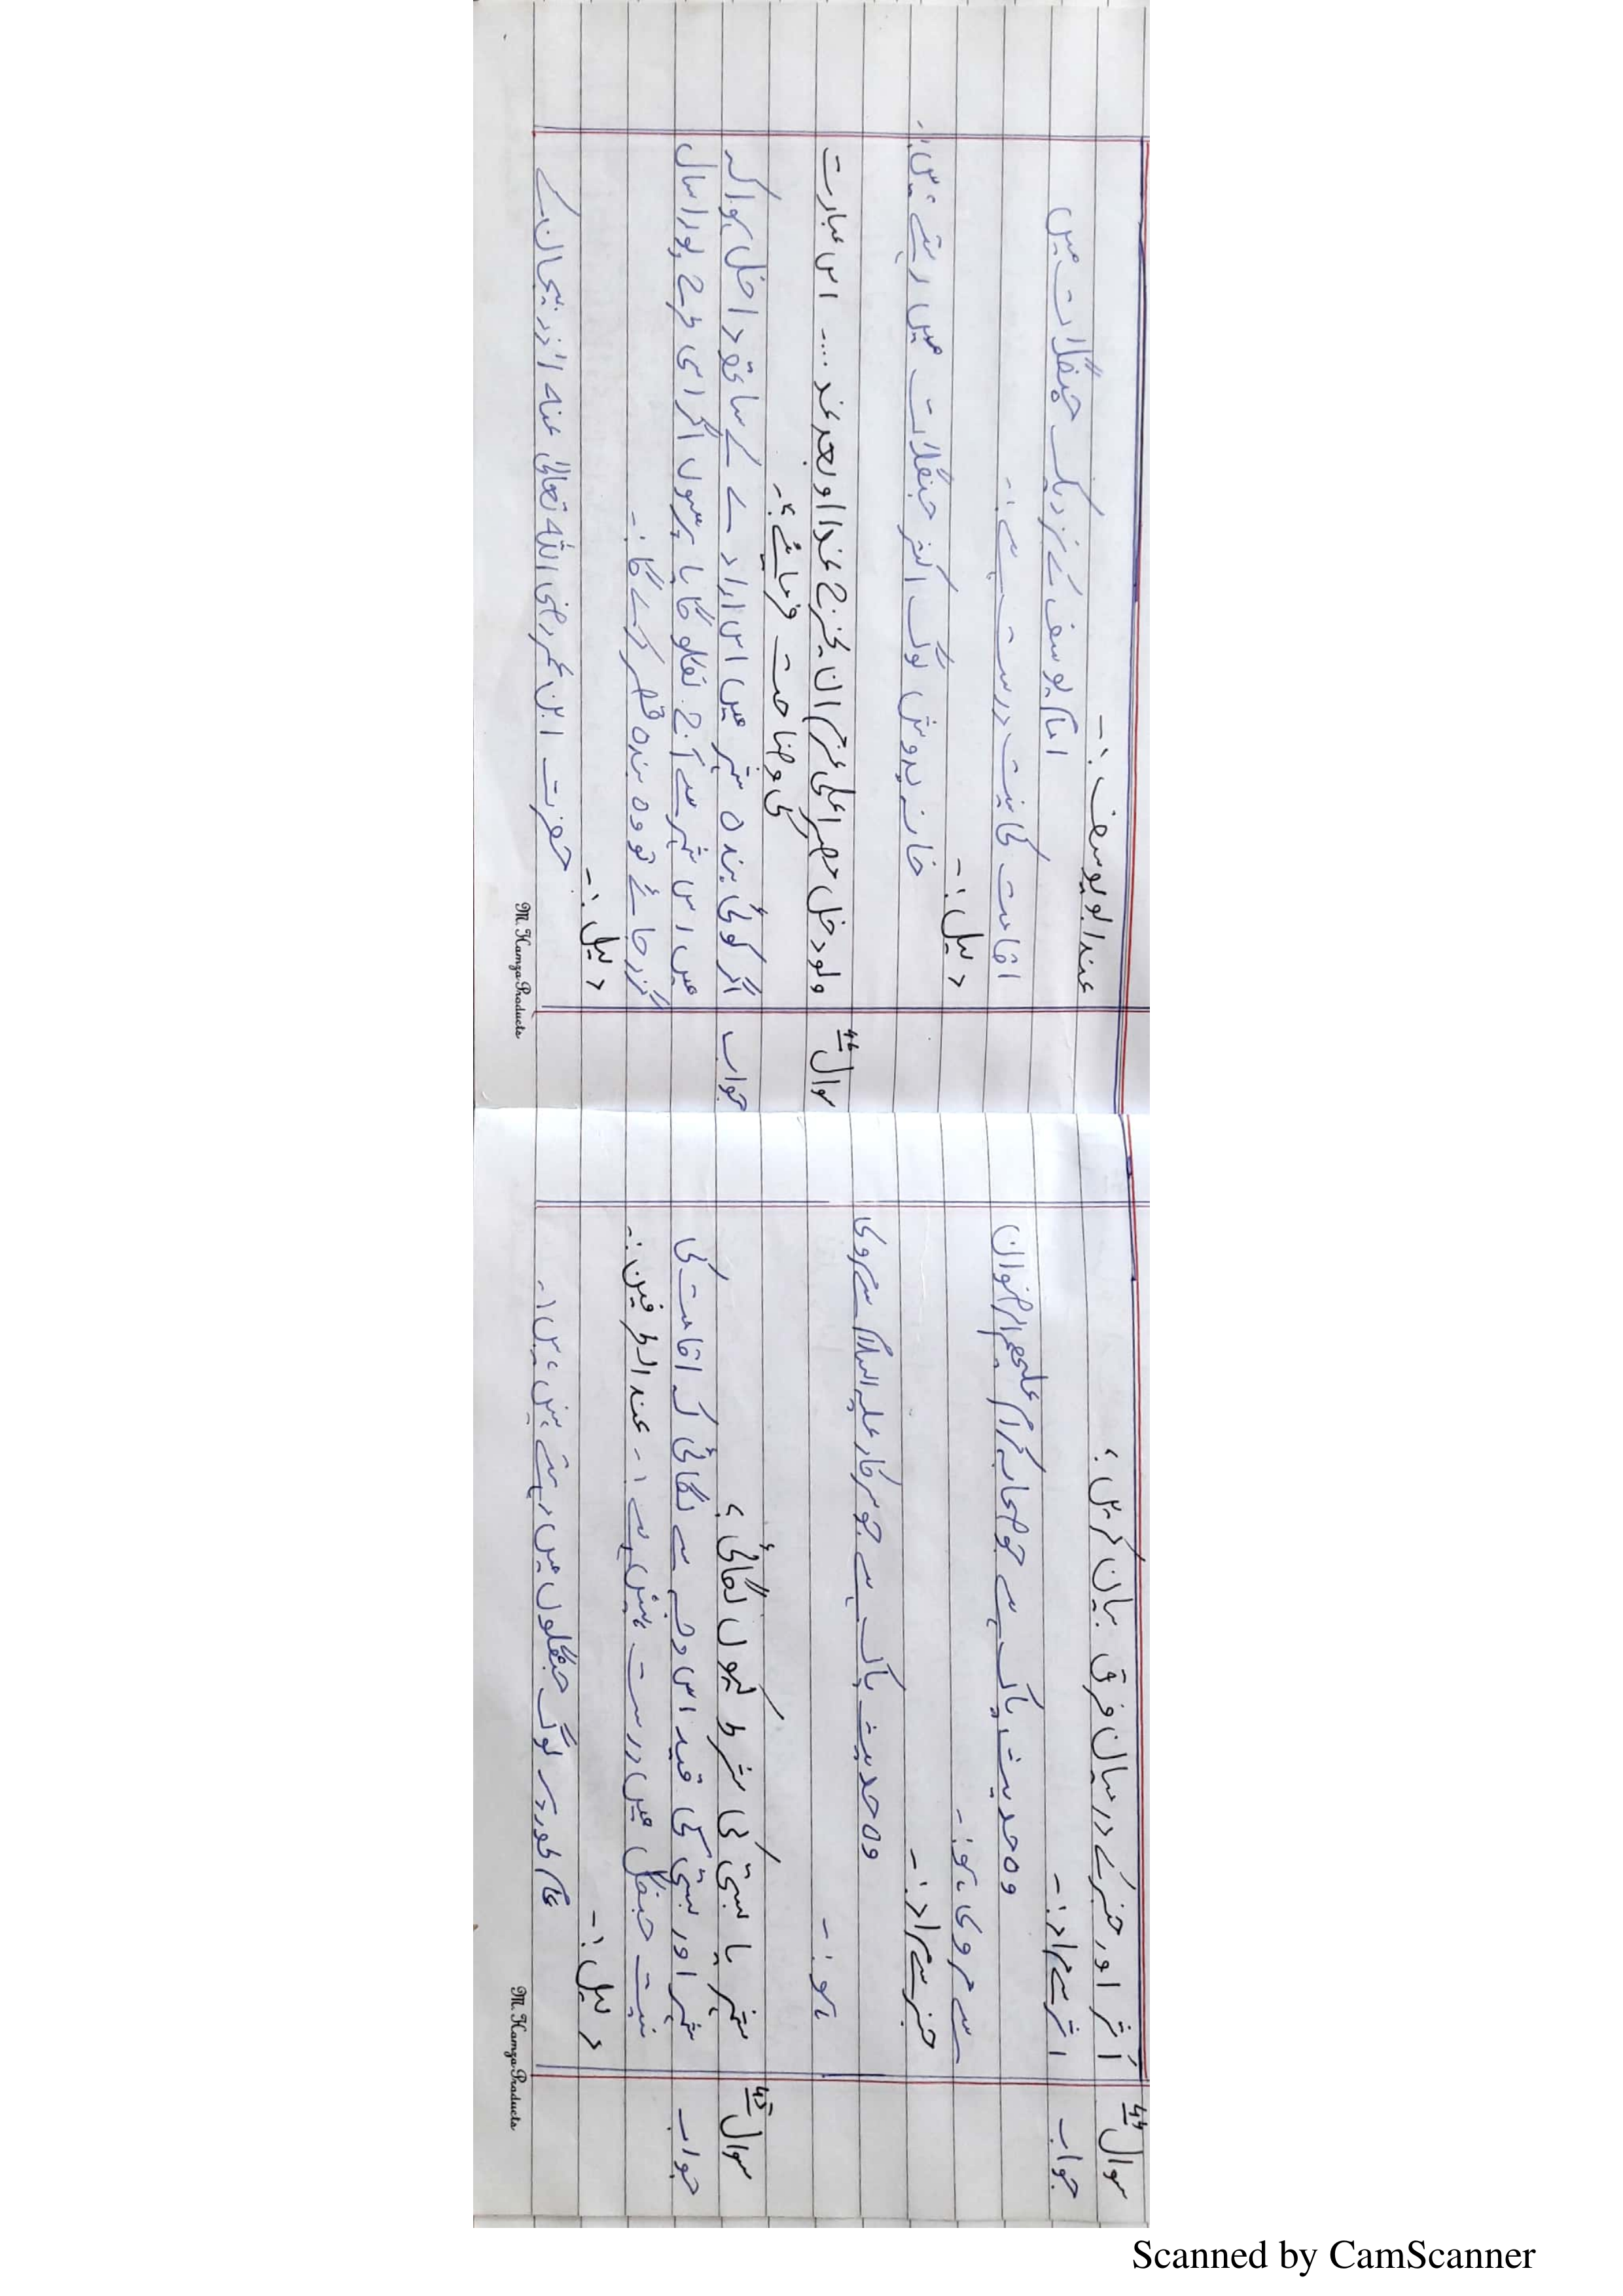 سوال 44 اثر اور خبر کے درمیان فرق بیان کریں؟
جواب اثر سے مراد:-
وہ حدیث پاک ہے جو صحابہ کرام علیھم الرضوان
سے مروی ہو:-
خبر سے مراد:-
وہ حدیث پاک ہے جو سرکار علیہ السلام سے مروی
ہو:-
سوال 45 شہر یا بستی کی شرط کیوں لگائی؟
جواب شہر اور بستی کی قید اس وجہ سے لگائی کہ اقامت کی
نیت جنگل میں درست نہیں ہے :- عند الطرفین:-
دلیل:-
عام طور پر لوگ جنگلوں میں رہتے نہیں ہیں:-
M. Hamza Products
عند ابو یوسف:-
امام یوسف کے نزدیک جنگلات میں
اقامت کی نیت درست ہے:-
دلیل:-
خانہ بدوش لوگ اکثر جنگلات میں رہتے ہیں:-
سوال 46 ولو دخل مصرا علی عزم ان یخرج غدا او بعد غد .... اس عبارت
کی وضاحت فرمائیے؟-
جواب اگر کوئی بندہ شہر میں اس ارادے کے ساتھ داخل ہوا کہ
میں اس شہر سے آج نکلو گا یا پرسوں اگر اسی طرح پورا سال
گزر جائے تو وہ بندہ قصر کرے گا:-
دلیل:-
حضرت ابن عمر رضی اللہ تعالیٰ عنہ آذربیجان کے
M. Hamza Products
Scanned by CamScanner